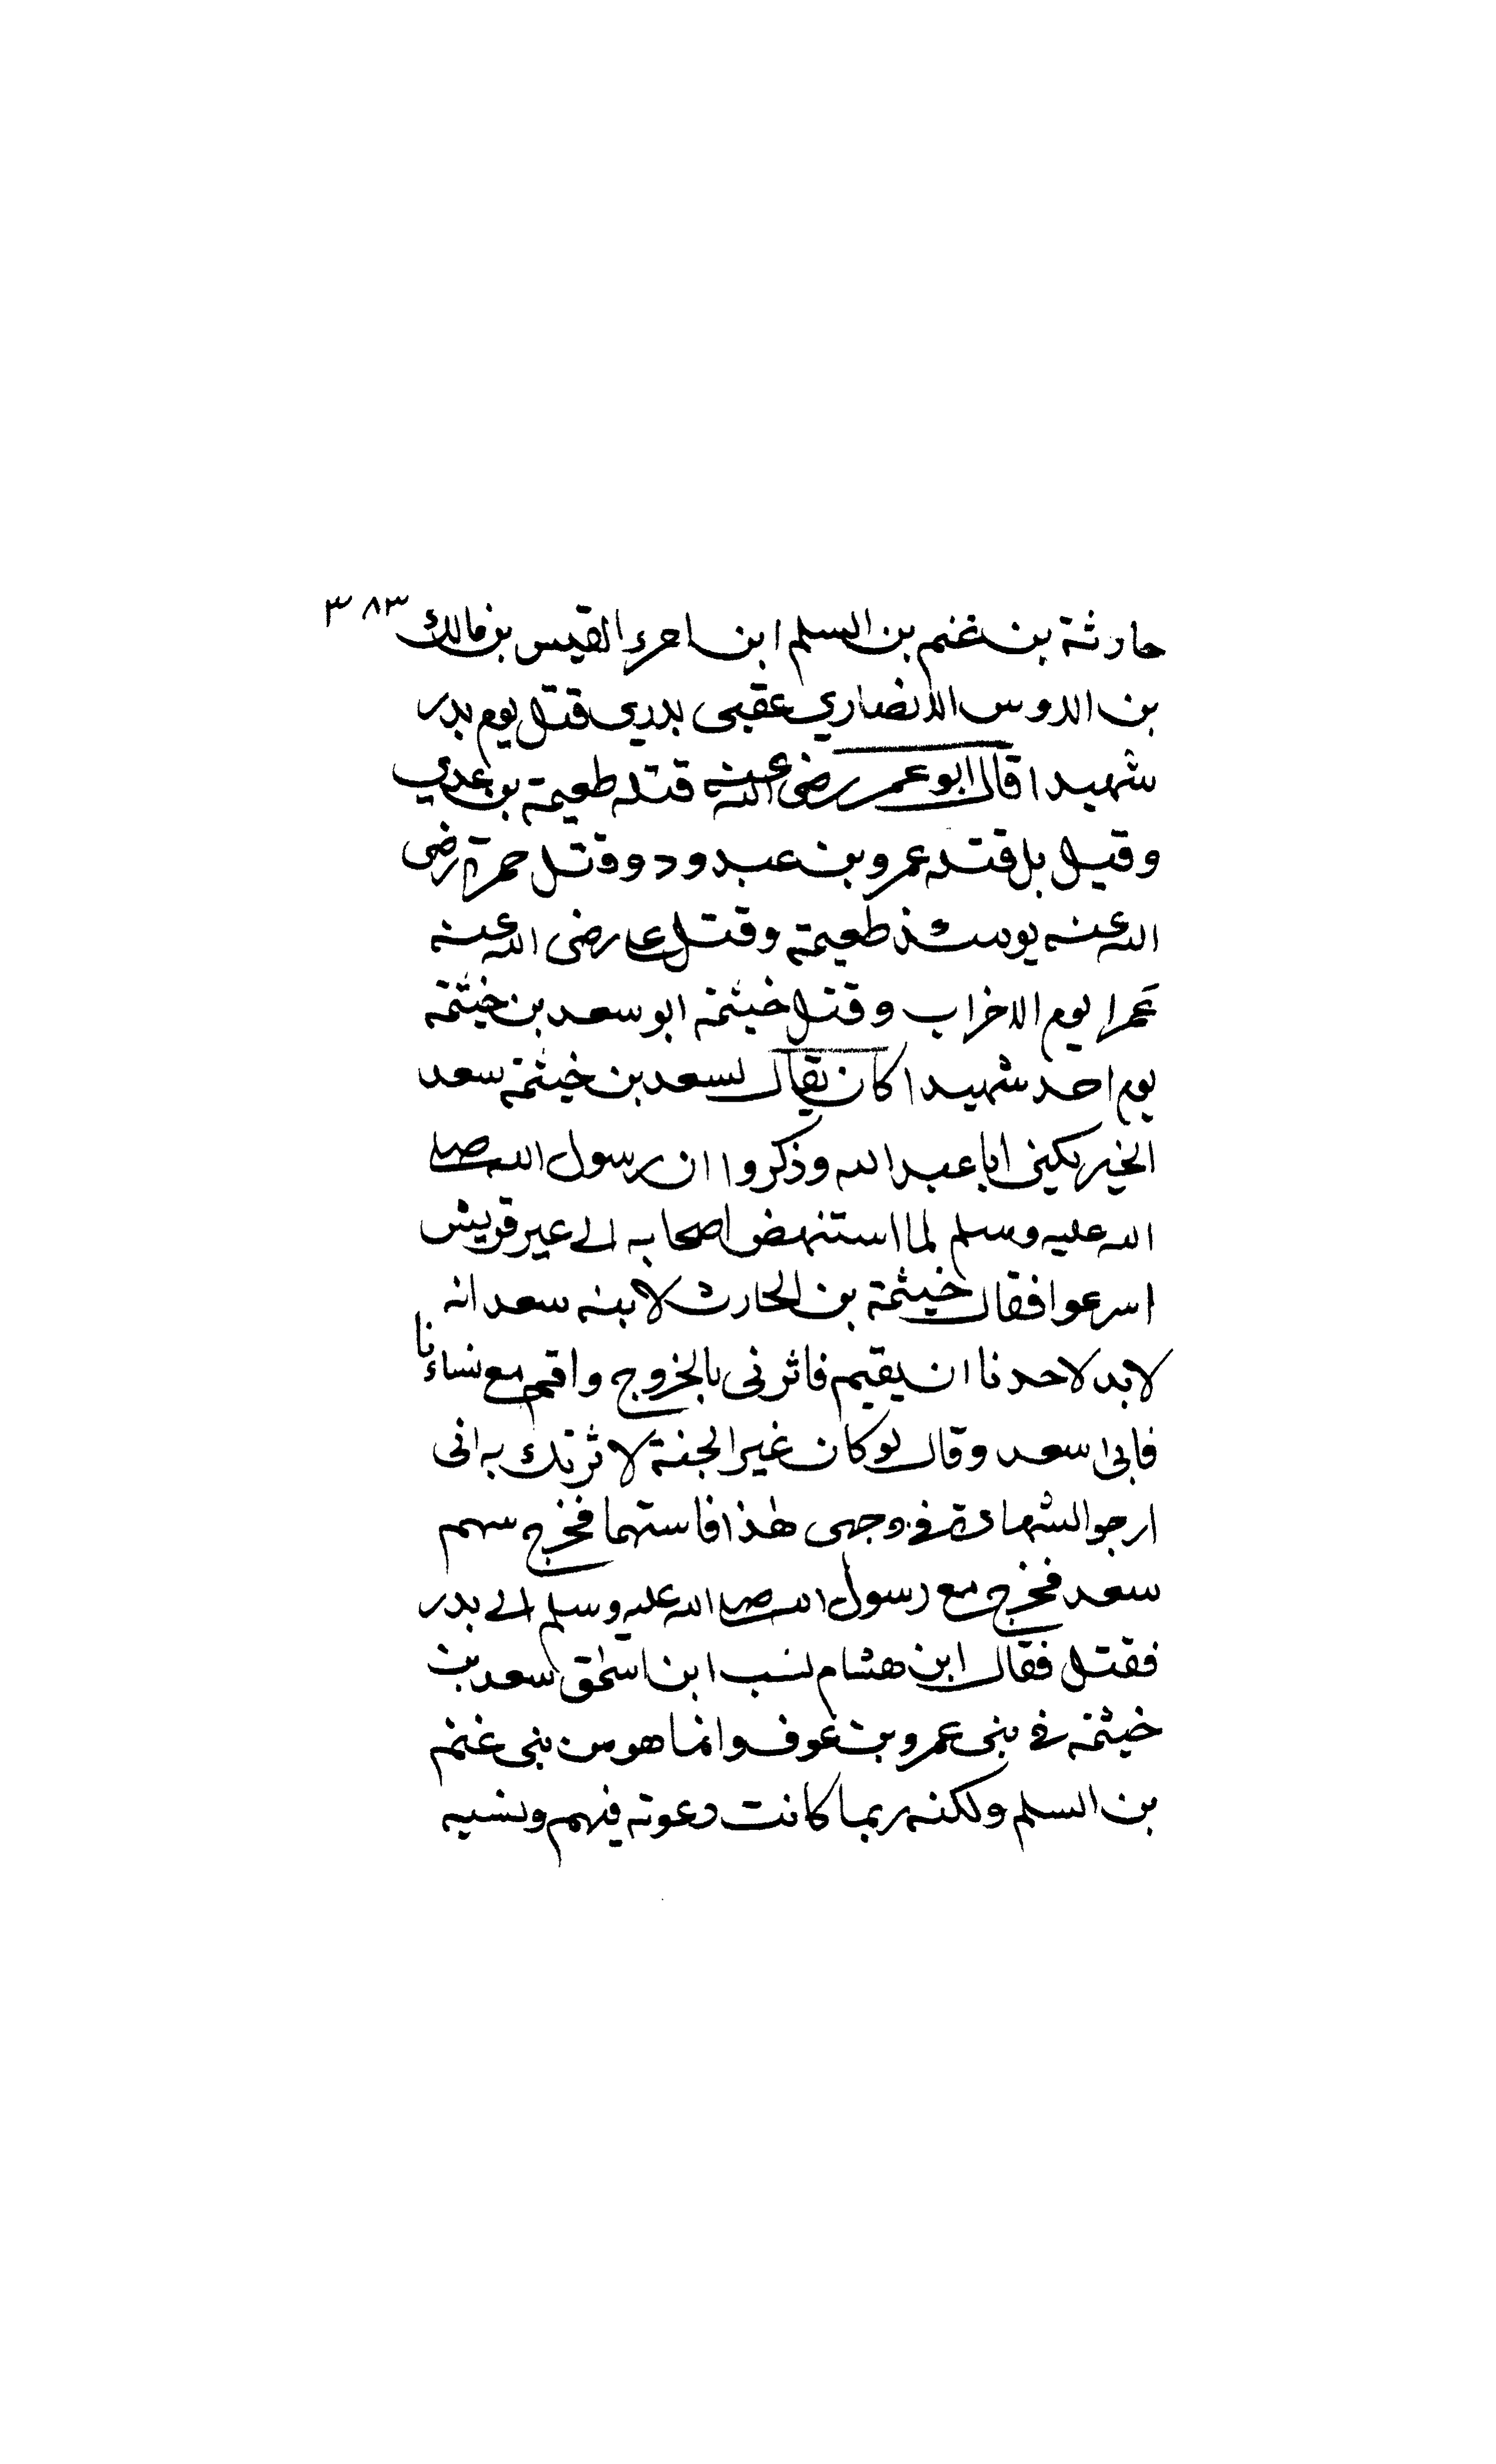 حارثة بن غنم بن السلم ابن امرء القيس بن مالك ٣٨٣
بن الدوس الانصاري عقبى بدري قتل يوم بدر
شهيدا قال ابو عمر رضى الله عنه قتله طعيمة بن عدي
وقيل بل قتله عمرو بن عبد ود وقتل حمزة رضى
الله عنه يومئذ طعيمة وقتل على رضى الله عنه
عمرا يوم الاخراب وقتل خيثمة ابو سعد بن خيثمة
يوم احد شهيدا كان يقال لسعد بن خيثمة سعد
الخير يكنى ابا عبد الله وذكروا ان رسول الله صلى
الله عليه وسلم لما استنهض اصحابه الى عير قريش
اسرعوا فقال خيثمة بن الحارث لابنه سعد انه
لابد لاحدنا ان يقيم فاثرنى بالخروج واقم مع نساءنا
فابى سعد وقال لو كان غير الجنة لاثرتك به انى
ارجو الشهادة فى وجهى هذا فاستهما فخرج سهم
سعد فخرج مع رسول الله صلى الله عليه وسلم الى بدر
فقتل فقال ابن هشام نسب ابن اسحق سعد بن
خيثمة فى بنى عمرو بن عوف وانما هو من بنى غنم
بن السلم ولكنه ربما كانت دعوته فيهم ونسبه